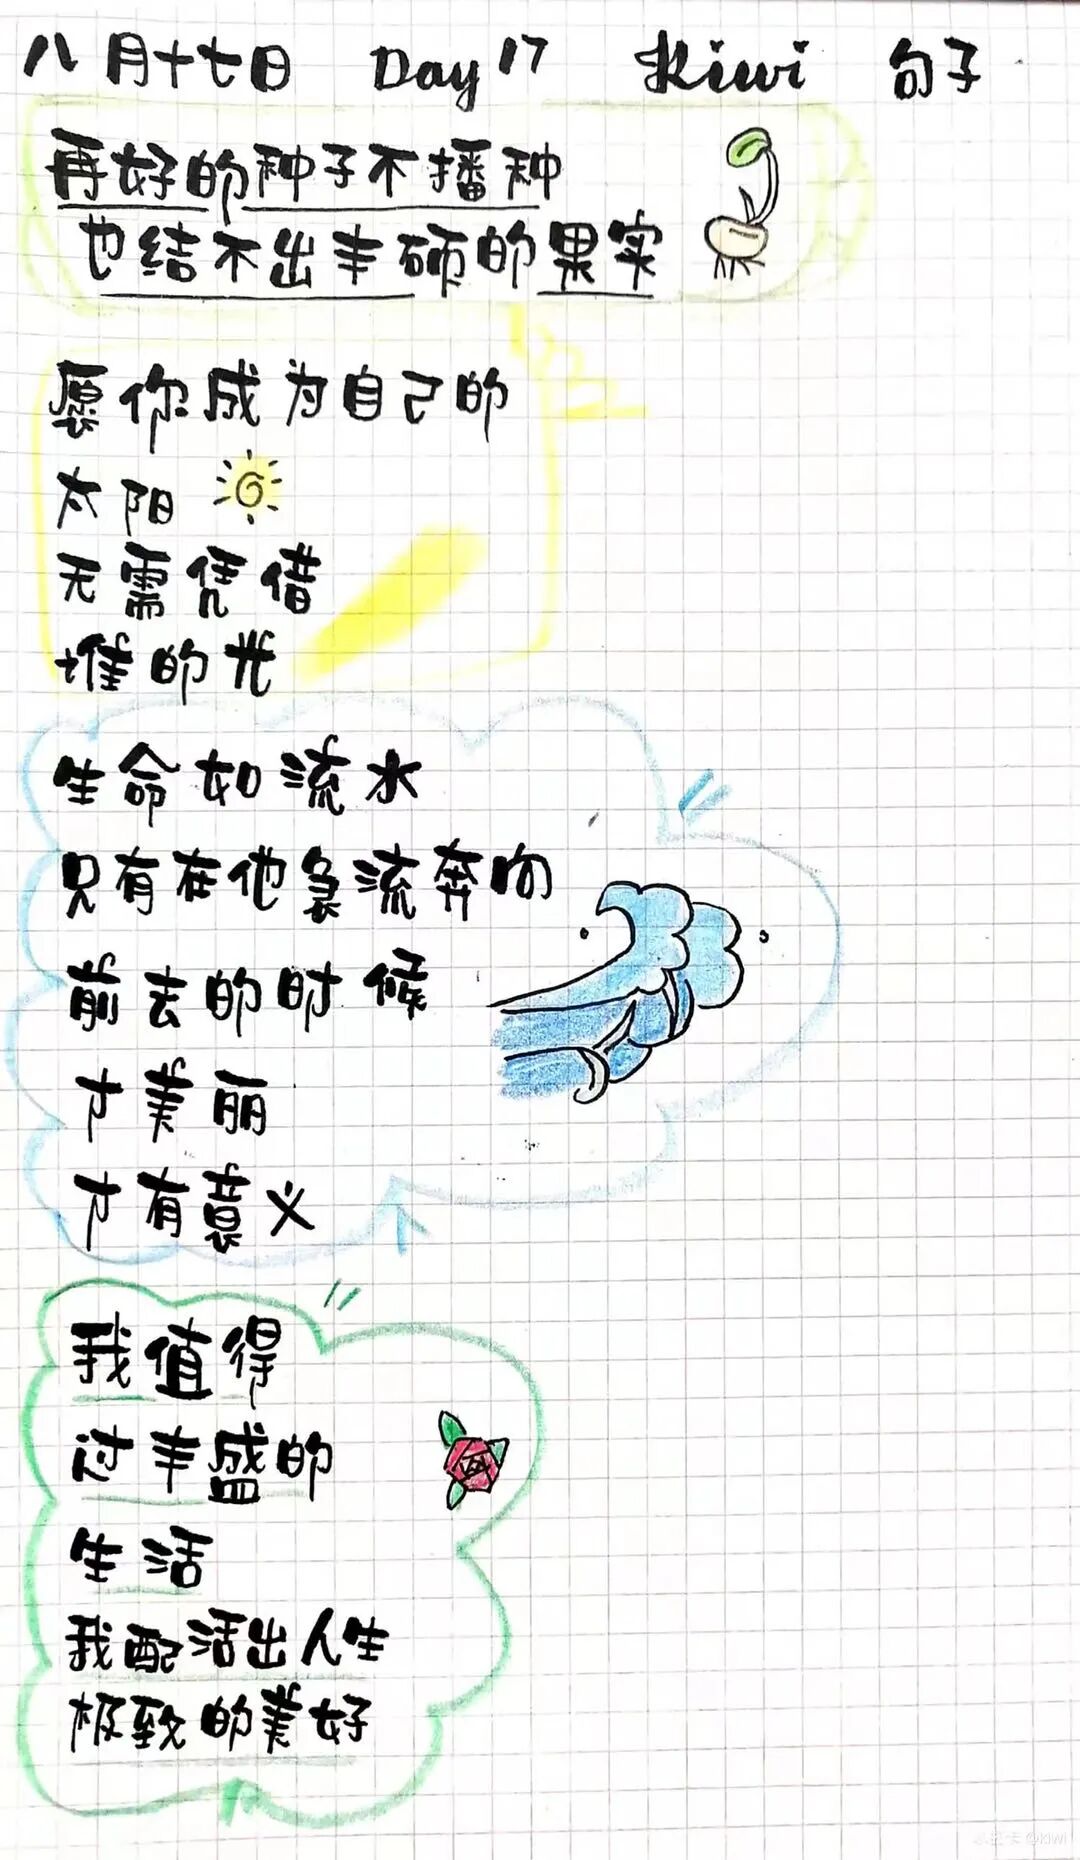 八月十七日 Day 17 Kiwi 句子
再好的种子不播种
也结不出丰硕的果实
愿你成为自己的
太阳
无需凭借
谁的光
生命如流水
只有在他急流奔向
前去的时候
才美丽
才有意义
我值得
过丰盛的
生活
我配活出人生
极致的美好
@kiwi